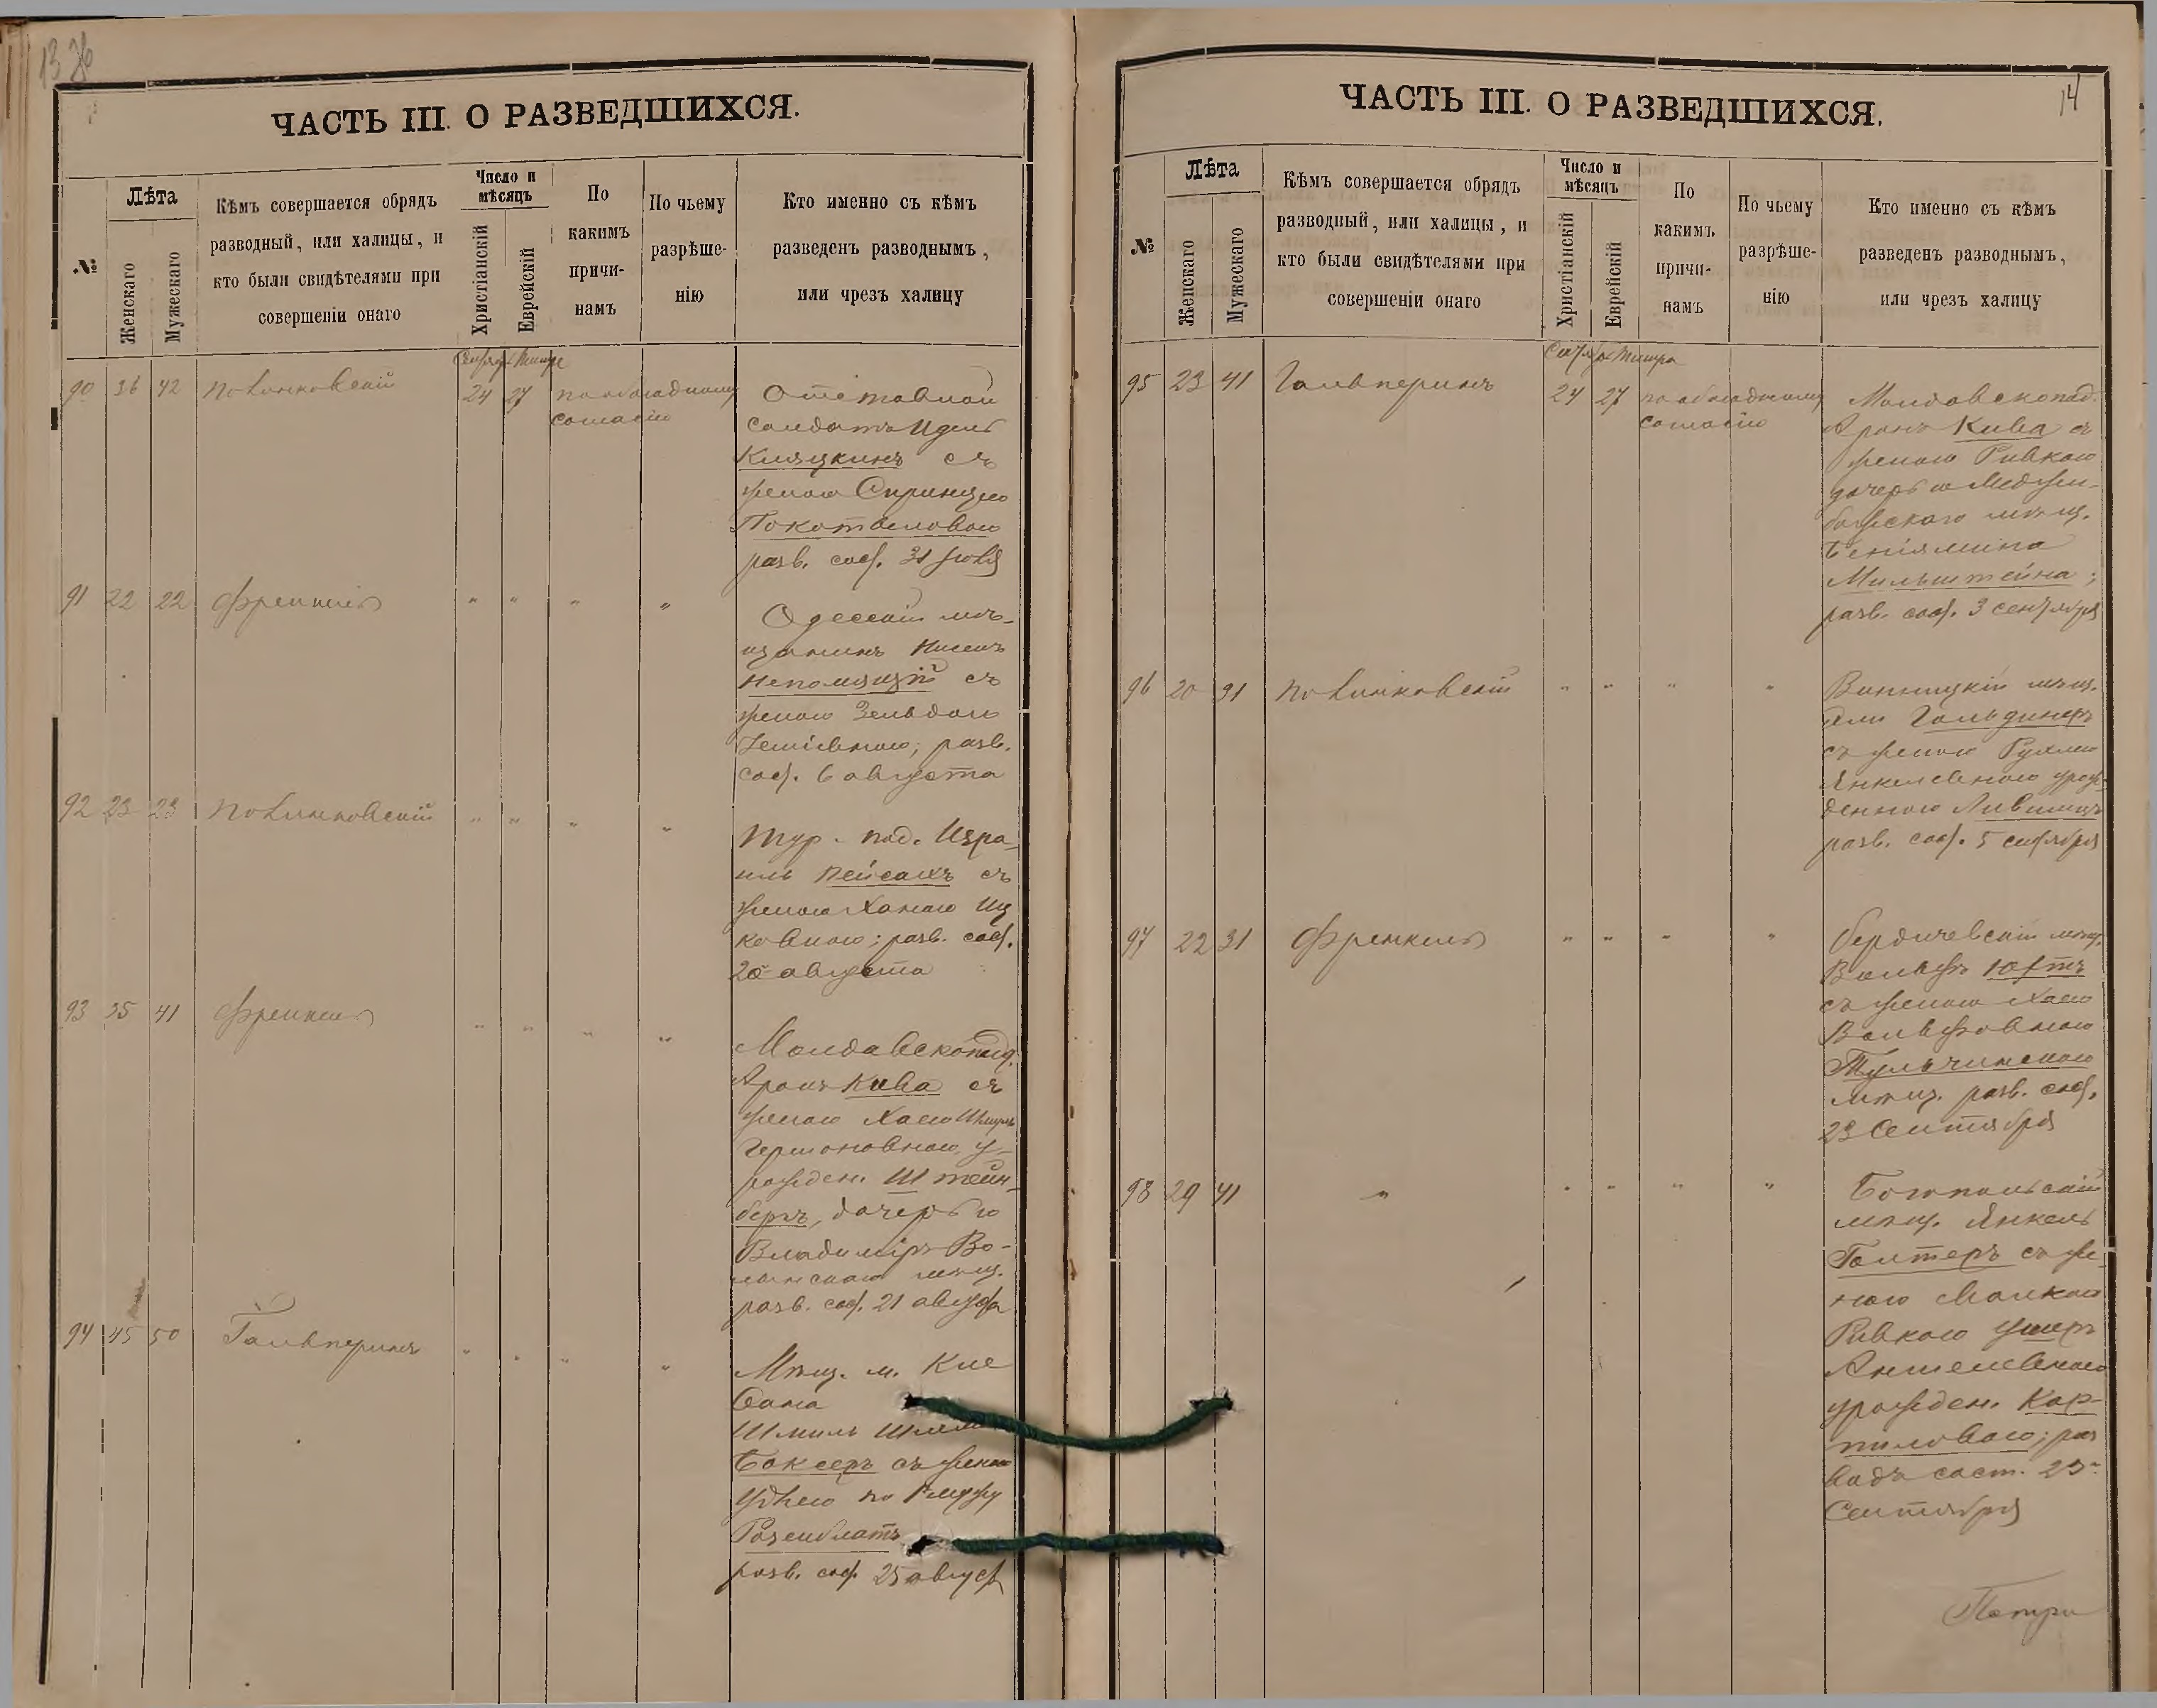 13 об
ЧАСТЬ III. О РАЗВЕДШИХСЯ.
№
Лѣта
Женскаго
Мужескаго
Кѣмъ совершается обрядъ
разводный, или халицы, и
кто были свидѣтелями при
совершеніи онаго
Число и
мѣсяцъ
Христіанскій
Еврейскій
По
какимъ
причи-
намъ
По чьему
разрѣше-
нію
Кто именно съ кѣмъ
разведенъ разводнымъ,
или чрезъ халицу
90 36 42
24 27 по обоюдному
согласію
Отставной
солдатъ Идель
Кляцкинъ съ
женою Спринцею
Покотиловою
разв. сос. 31 іюля
91 22 22 Френкель " " " "
Одесскій мѣ-
щанинъ Нисенъ
Непомящій съ
женою Зельдою
разв.
сос. 6 августа
92 23 23 " " " "
Тур. под. Изра-
иль Пейсахъ съ
женою Ханою Иц
ковною; разв. сос.
20 августа
93 35 41 Френкель " " " "
Молдавскопод.
Аронъ Кива съ
женою Хаею
Гершоновною, у-
рожден. Штейн-
бергъ, дочерью
Владиміръ Во-
лынскаго мѣщ.
разв. сос. 21 августа
94 45 50 Гальперинъ " " " "
Мѣщ. м. Кле
бана
Шмиль
Боксеръ съ женою
Розенблатъ
разв. сос. 25 август
14
ЧАСТЬ III. О РАЗВЕДШИХСЯ.
№
Лѣта
Женскаго
Мужескаго
Кѣмъ совершается обрядъ
разводный, или халицы, и
кто были свидѣтелями при
совершеніи онаго
Число и
мѣсяцъ
Христіанскій
Еврейскій
По
какимъ
причи-
намъ
По чьему
разрѣше-
нію
Кто именно съ кѣмъ
разведенъ разводнымъ,
или чрезъ халицу
95 23 41 Гальперинъ 24 27 по обоюдному
согласію
Молдавскопод.
Аронъ Кива съ
женою Ривкою
дочерью Меджи-
божскаго мѣщ.
Беніямина
Мильштейна;
разв. сос. 3 сентября
96 20 31 " " " "
Винницкій мѣщ.
Гольдинеръ
съ женою Рухлею
Янкелевною урож-
денною Лившицъ
разв. сос. 5 сентября
97 22 31 Френкель " " " "
Бердичевскій мѣщ.
Вольфъ Юфтъ
съ женою Хаею
Вольфовною
Тульчинскою
мѣщ. разв. сос.
23 Сентября
98 29 41 " " " " "
Богопольскій
мѣщ. Янкель
Голтеръ съ же-
ною Малкою
Ривкою Ушеръ
Аншелевною
урожден. Кор-
ниловою; раз
водъ сост. 23
Сентября